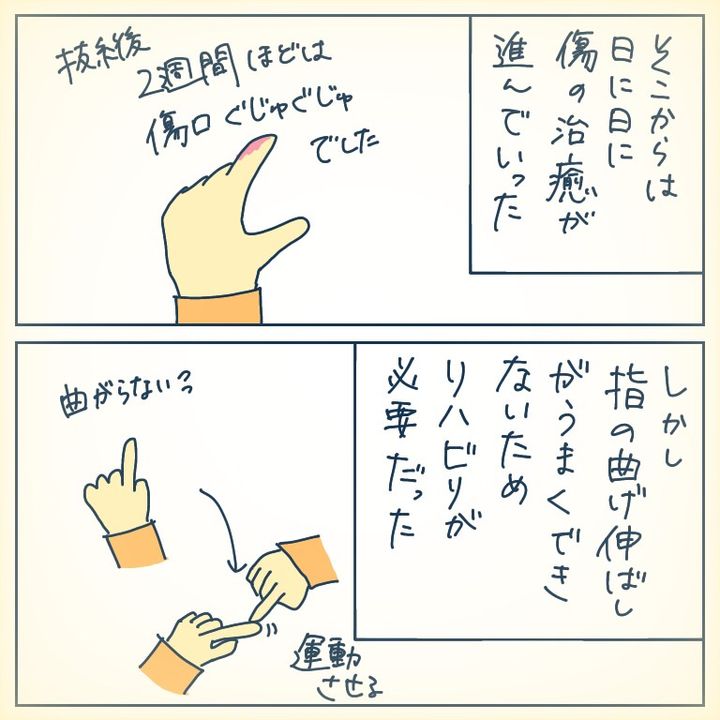 そこからは
日に日に
傷の治癒が
進んでいった
抜糸後
2週間ほどは
傷口ぐじゅぐじゅ
でした
しかし
指の曲げ伸ばし
がうまくでき
ないため
リハビリが
必要だった
曲がらない??
運動
させる